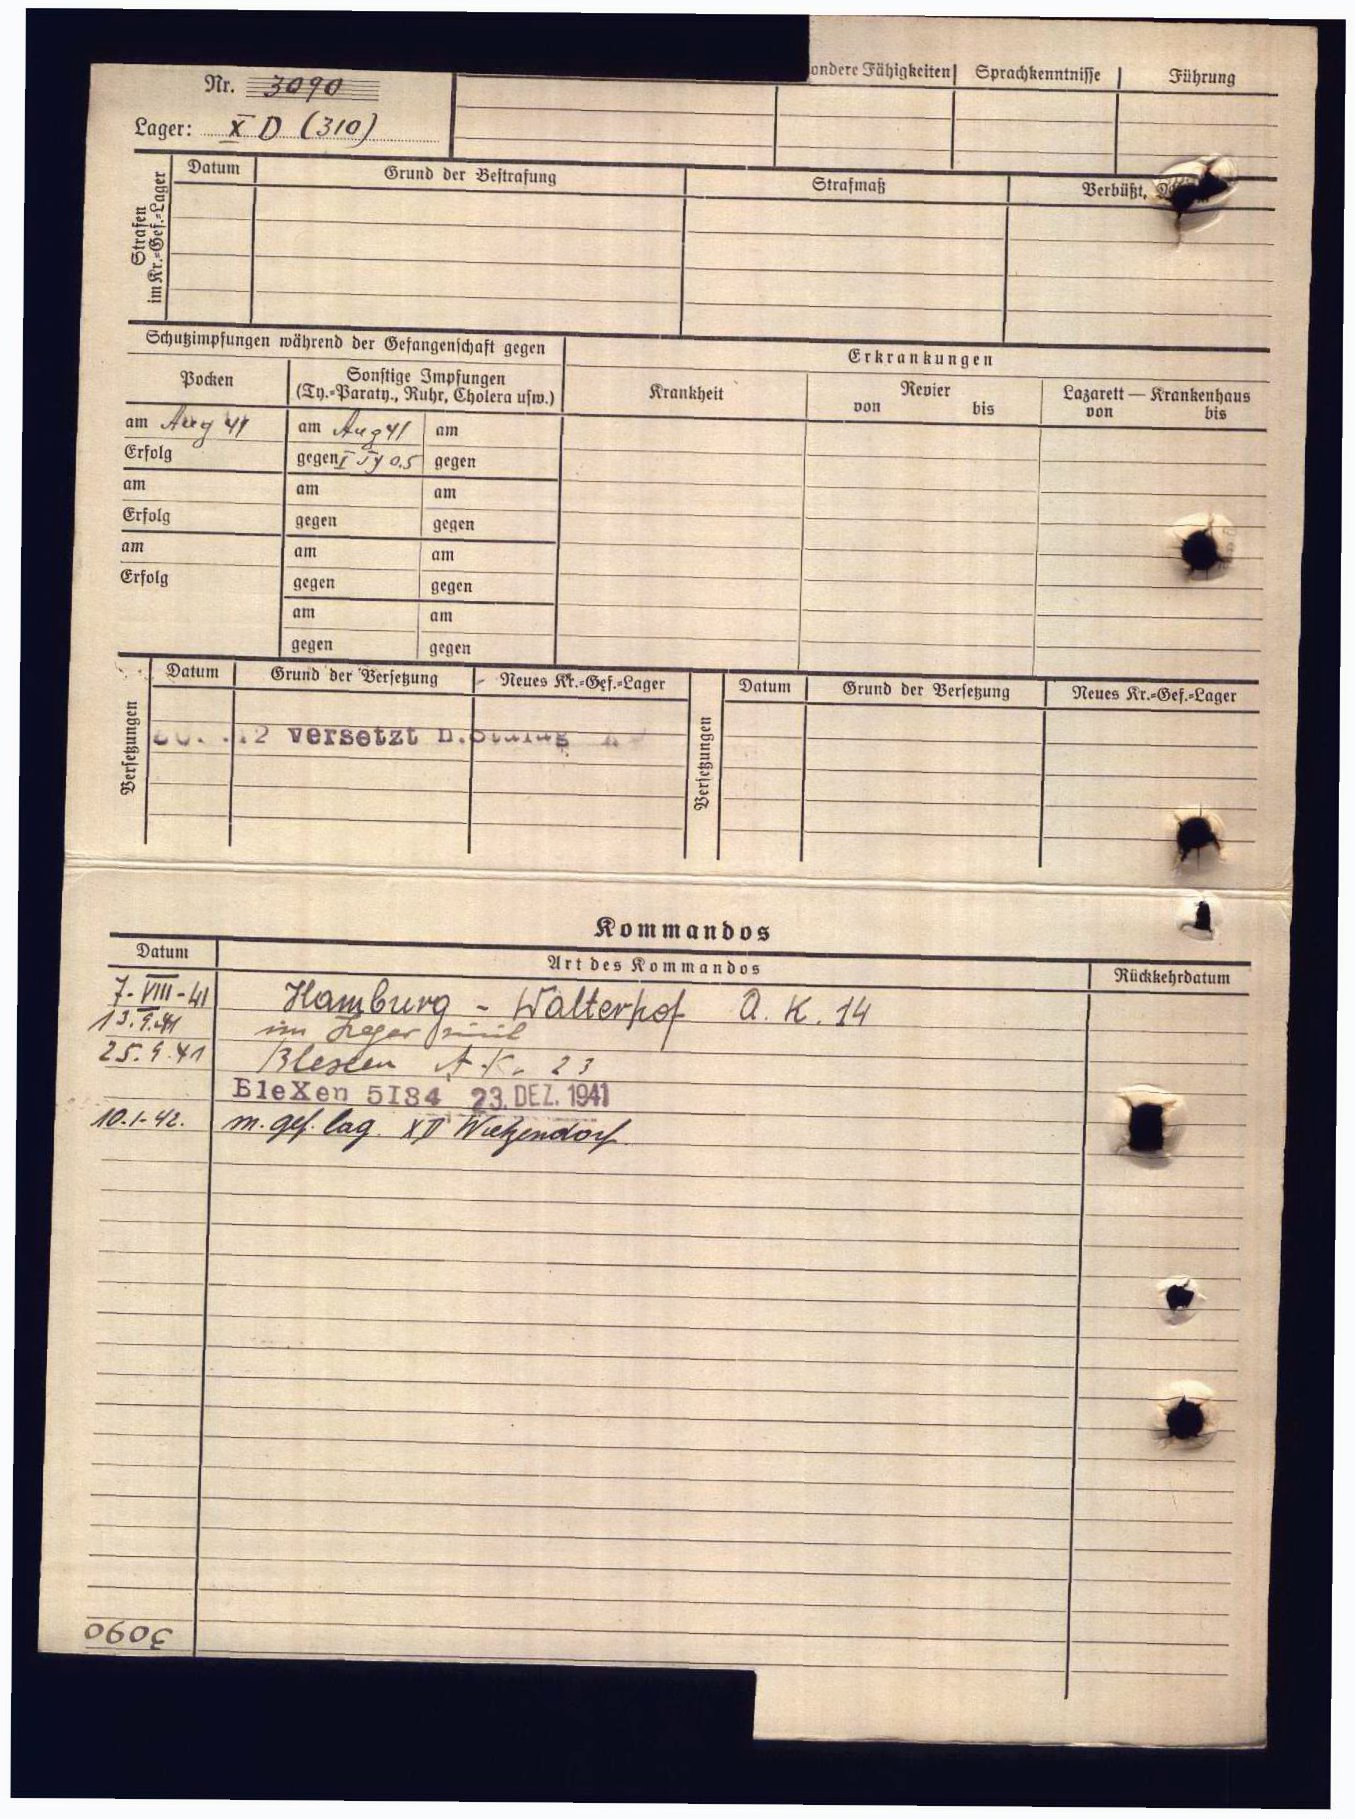 Nr. 3090
Lager: X D (310)
ondere Fähigkeiten Sprachkenntnisse Führung
Strafen im Kr.=Gef.=Lager
Datum Grund der Bestrafung Strafmaß Verbüßt,
Schutzimpfungen während der Gefangenschaft gegen
Erkrankungen
Pocken
Sonstige Impfungen
(Ty.=Paraty., Ruhr, Cholera usw.)
Krankheit
Revier
von bis
Lazarett — Krankenhaus
von bis
am Aug 41 am Aug 41 am
Erfolg gegen I Ty 0.5 gegen
am am am
Erfolg gegen gegen
am am am
Erfolg gegen gegen
am am
gegen gegen
Versetzungen
Datum Grund der Versetzung Neues Kr.=Gef.=Lager
versetzt
Versetzungen
Datum Grund der Versetzung Neues Kr.=Gef.=Lager
Kommandos
Datum Art des Kommandos Rückkehrdatum
7-VIII-41 Hamburg - Walterhof A.K. 14
13.9.41 im Lager
25.9.41 Blexen A.K. 23
BleXen 5184 23. DEZ. 1941
10.1-42. m. gef. lag. XD Wietzendorf
3090